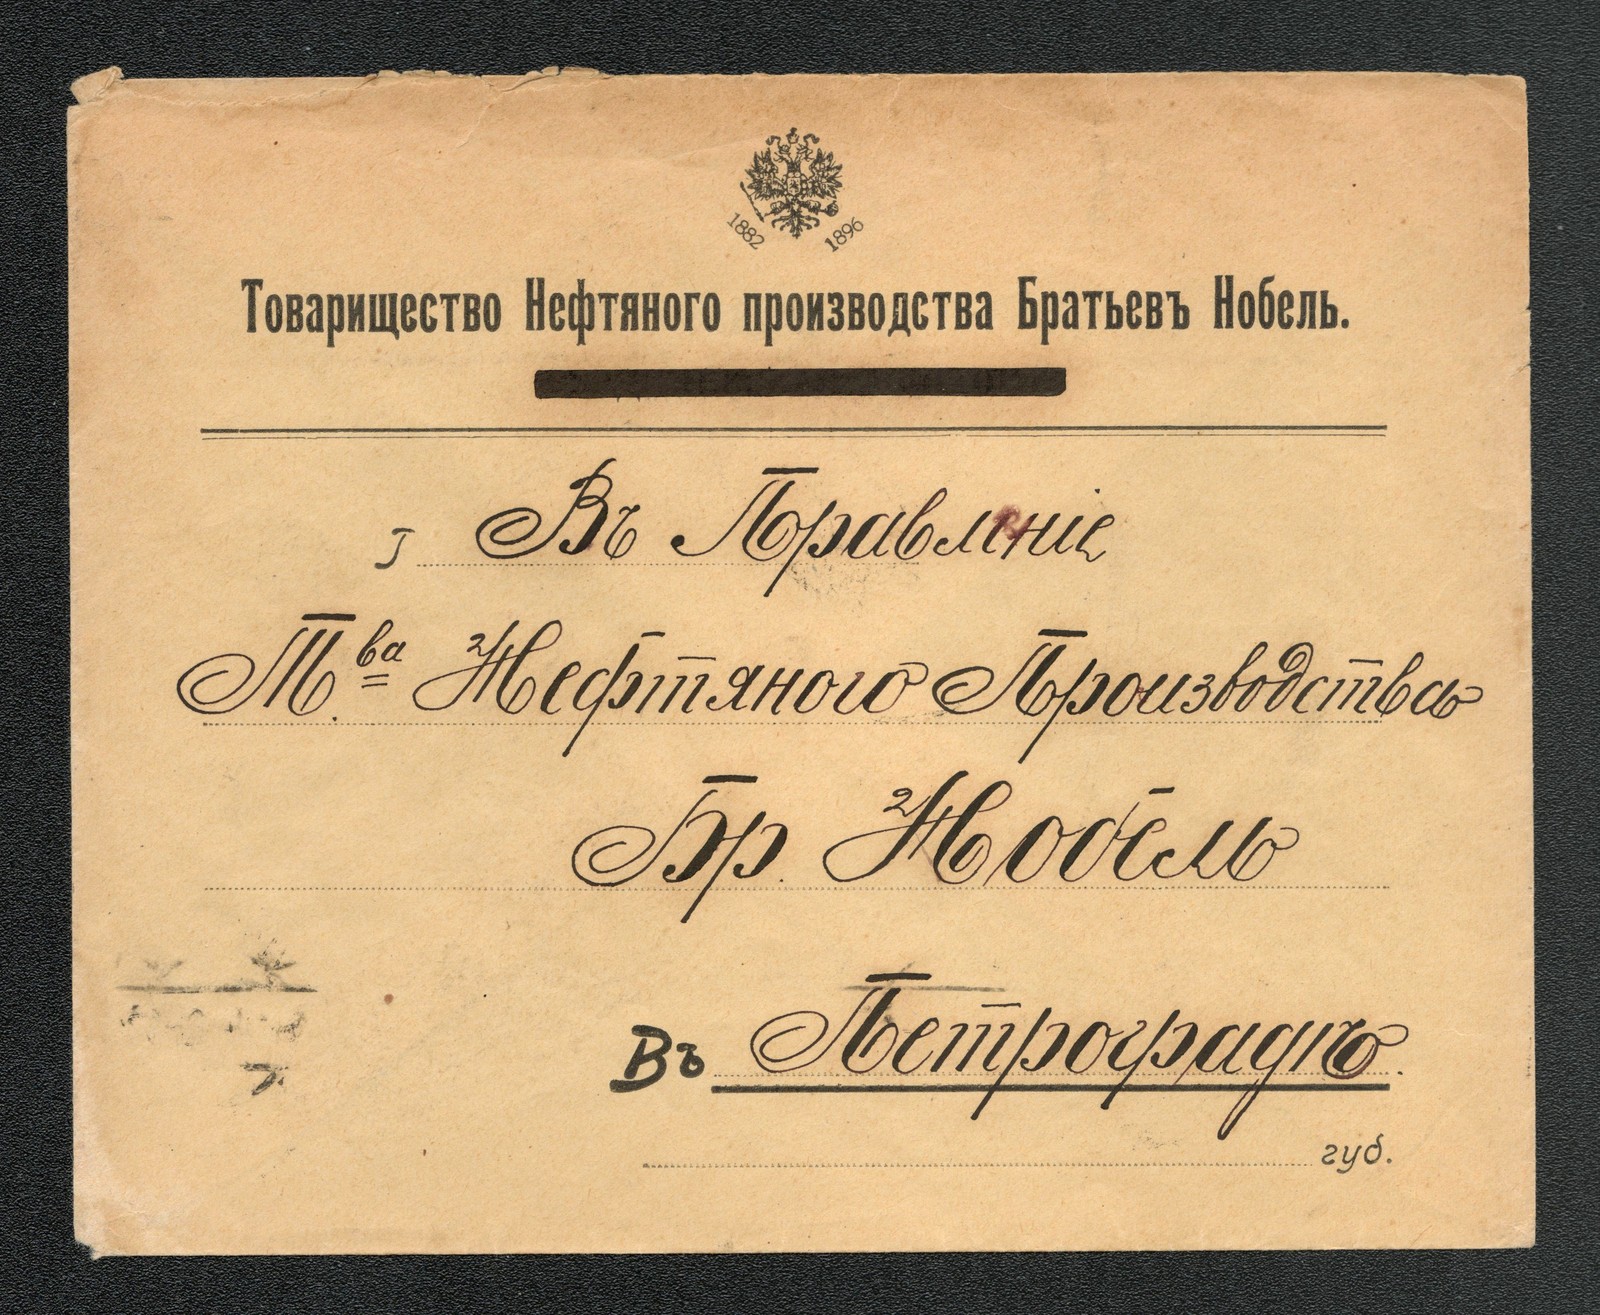 1882 1896
Товарищество Нефтяного производства Братьевъ Нобель.
Въ Правленіе
Т.ва Нефтяного Производства
Бр. Нобель
Въ Петроградъ.
губ.